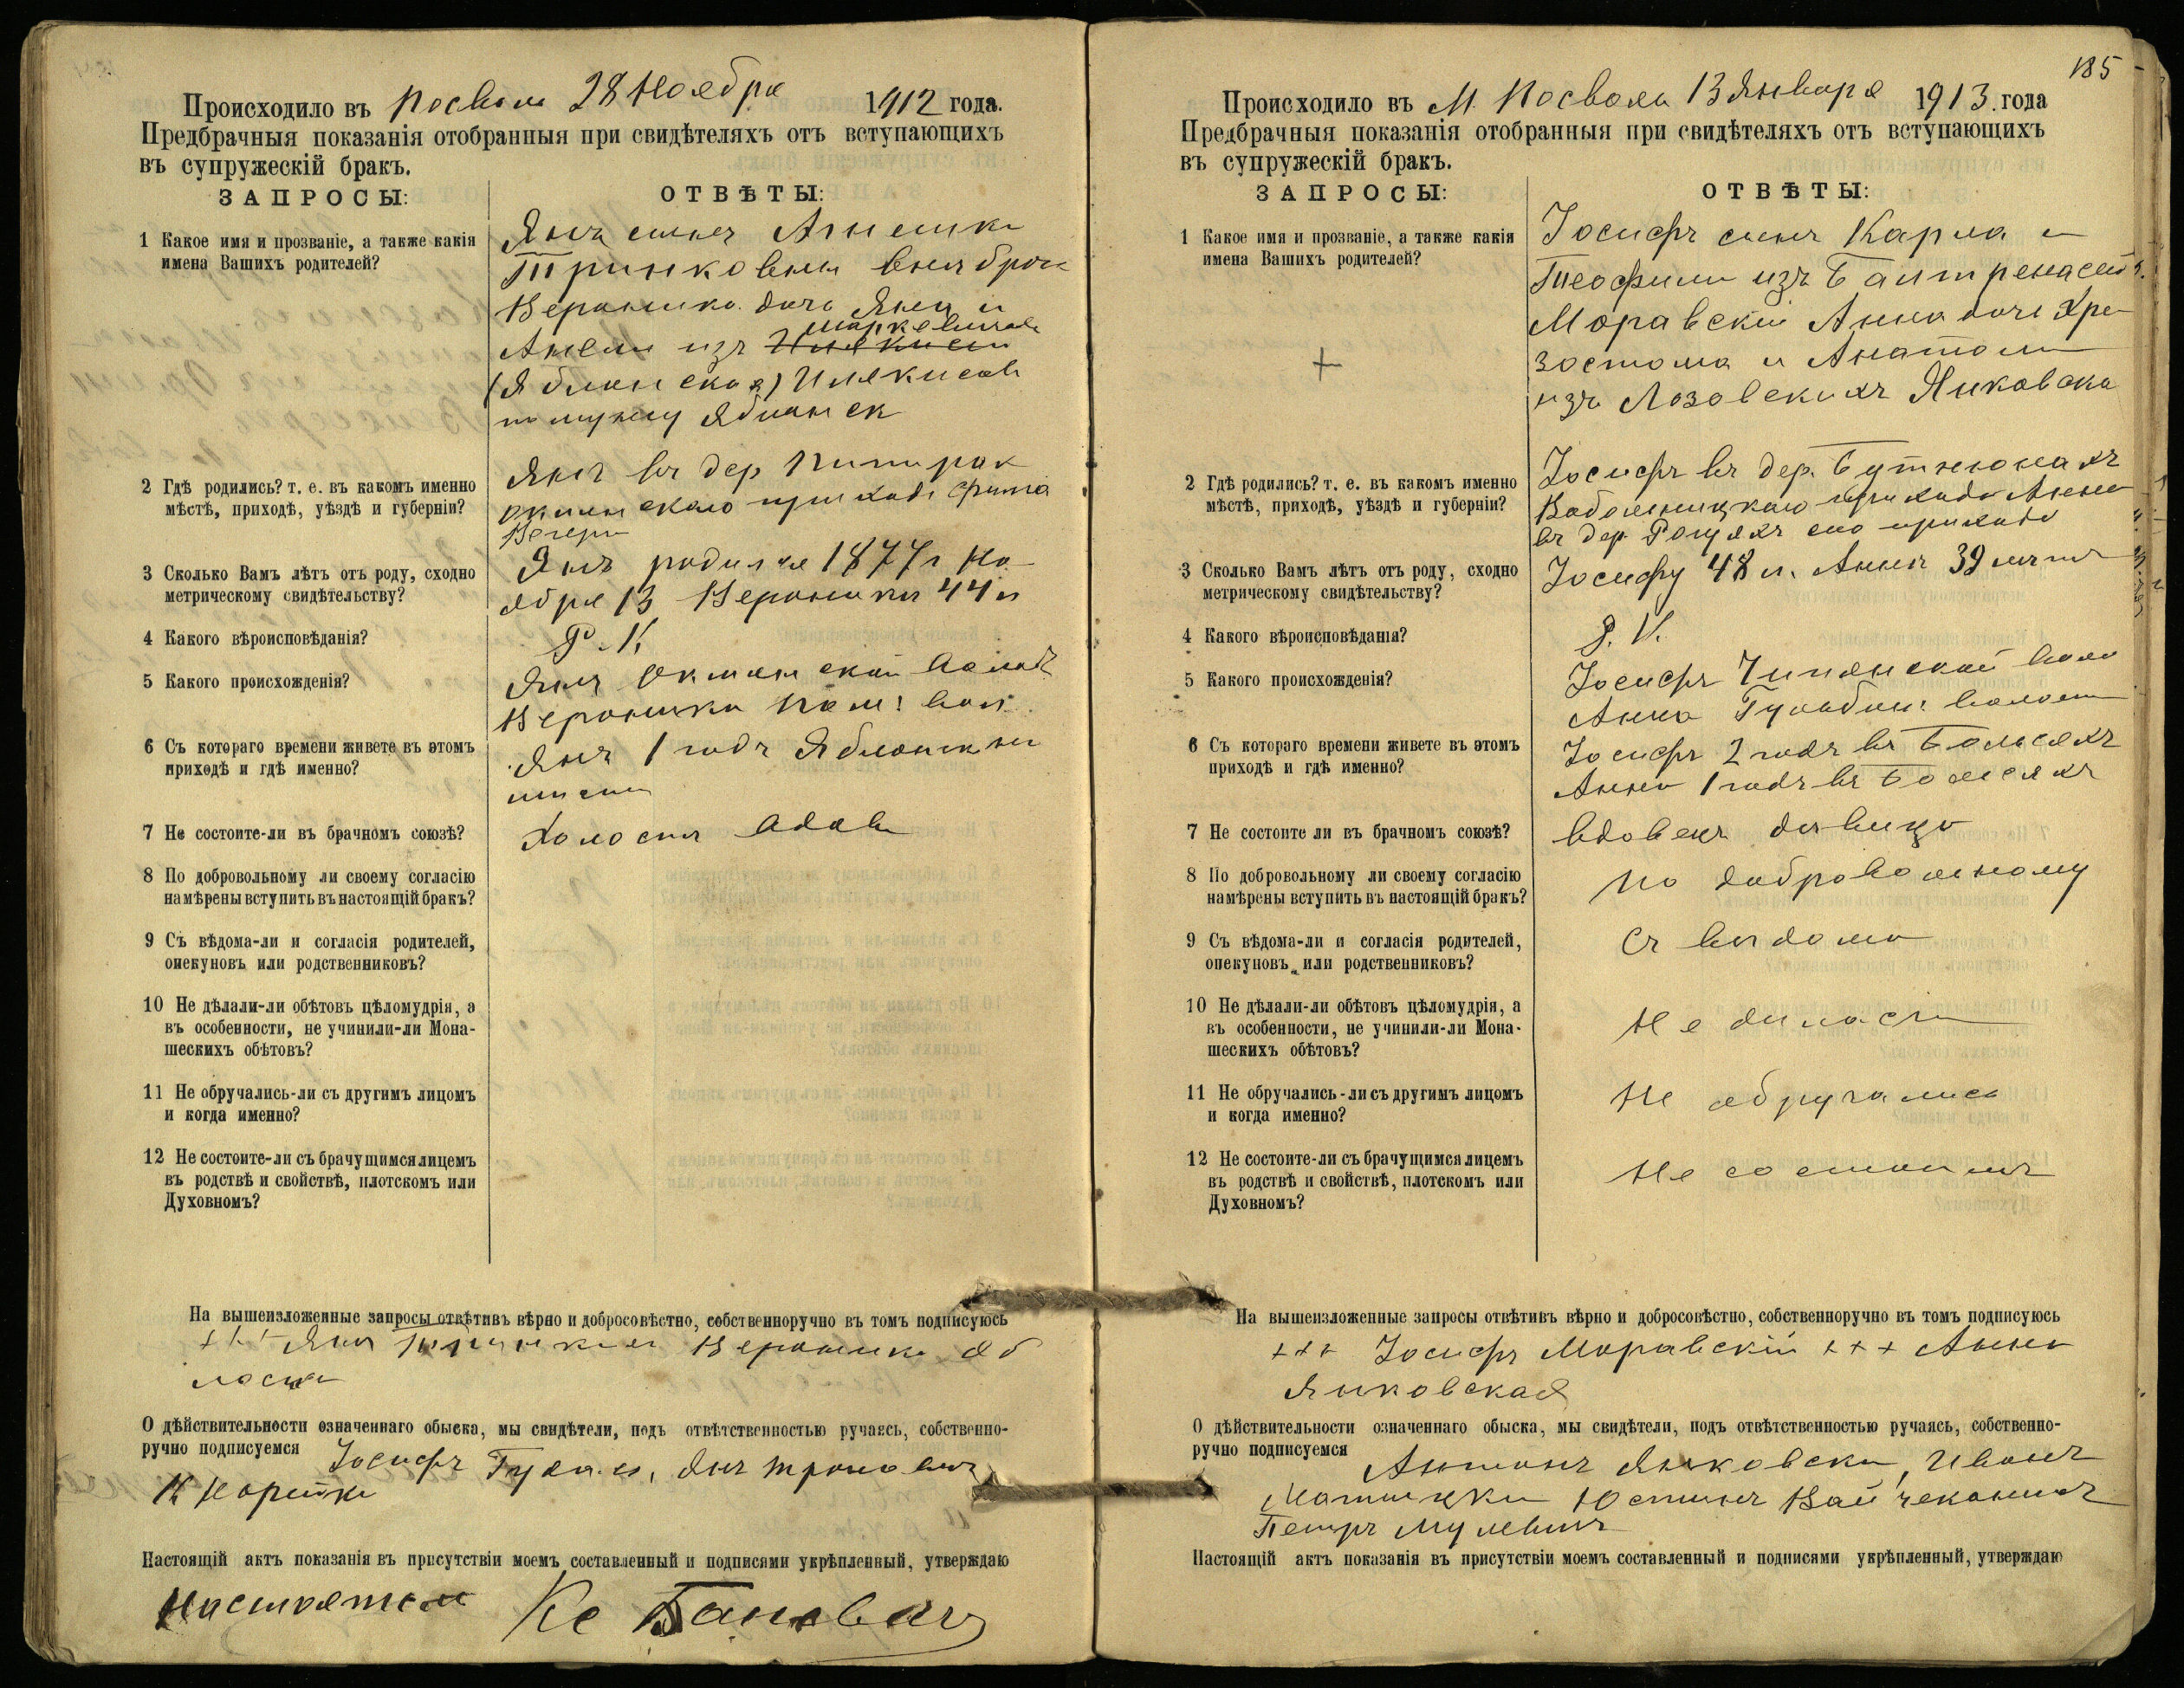 Происходило въ Посволи 28 Ноября 1912 года.
Предбрачныя показанія отобранныя при свидѣтеляхъ отъ вступающихъ
въ супружескій бракъ.
ЗАПРОСЫ:
ОТВѢТЫ:
1 Какое имя и прозваніе, а также какія
имена Вашихъ родителей?
Янъ сынъ Агнешки
Тринковны внѣ брач
Вероника дочь Яна и
Анели изъ
(Яблонская)
по мужу Яблонск
2 Гдѣ родились? т. е. въ какомъ именно
мѣстѣ, приходѣ, уѣздѣ и губерніи?
Янъ въ дер
прихода
3 Сколько Вамъ лѣтъ отъ роду, сходно
метрическому свидѣтельству?
Янъ родился 1877 г Но
ября 13 Вероника 44 л
4 Какого вѣроисповѣданія?
Р. К.
5 Какого происхожденія?
Янъ Окмянской волос
Вероника вол.
6 Съ котораго времени живете въ этомъ
приходѣ и гдѣ именно?
Янъ 1 годъ
7 Не состоите-ли въ брачномъ союзѣ?
Холостъ вдова
8 По добровольному ли своему согласію
намѣрены вступить въ настоящій бракъ?
9 Съ вѣдома-ли и согласія родителей,
опекуновъ или родственниковъ?
10 Не дѣлали-ли обѣтовъ цѣломудрія, а
въ особенности, не учинили-ли Мона-
шескихъ обѣтовъ?
11 Не обручались-ли съ другимъ лицомъ
и когда именно?
12 Не состоите-ли съ брачущимся лицемъ
въ родствѣ и свойствѣ, плотскомъ или
Духовномъ?
На вышеизложенные запросы отвѣтивъ вѣрно и добросовѣстно, собственноручно въ томъ подписуюсь
+++ Янъ Вероника Яб
О дѣйствительности означеннаго обыска, мы свидѣтели, подъ отвѣтственностью ручаясь, собственно-
ручно подписуемся Іосифъ Янъ
Настоящій актъ показанія въ присутствіи моемъ составленный и подписями укрѣпленный, утверждаю
Настоятель Кс
185
Происходило въ М. Посволи 13 Января 1913. года
Предбрачныя показанія отобранныя при свидѣтеляхъ отъ вступающихъ
въ супружескій бракъ.
ЗАПРОСЫ:
ОТВѢТЫ:
1 Какое имя и прозваніе, а также какія
имена Вашихъ родителей?
+
Іосифъ сынъ Карла и
Теофили изъ
Моравскій Анна дочь Хри
зостома и Анатоли
изъ Лозовскихъ Янковска
2 Гдѣ родились? т. е. въ какомъ именно
мѣстѣ, приходѣ, уѣздѣ и губерніи?
Іосифъ въ дер. Бутнюнахъ
Вабольницкаго прихода Анна
въ дер. Рощахъ прихода
3 Сколько Вамъ лѣтъ отъ роду, сходно
метрическому свидѣтельству?
Іосифу 48 л. Аннѣ 39 лѣтъ
4 Какого вѣроисповѣданія?
Р. К.
5 Какого происхожденія?
Іосифъ воло
Анна волост
6 Съ котораго времени живете въ этомъ
приходѣ и гдѣ именно?
Іосифъ 2 года въ
Анна 1 годъ въ
7 Не состоите ли въ брачномъ союзѣ?
вдовецъ дѣвица
8 По добровольному ли своему согласію
намѣрены вступить въ настоящій бракъ?
По добровольному
9 Съ вѣдома-ли и согласія родителей,
опекуновъ или родственниковъ?
Съ вѣдома
10 Не дѣлали-ли обѣтовъ цѣломудрія, а
въ особенности, не учинили-ли Мона-
шескихъ обѣтовъ?
Не
11 Не обручались-ли съ другимъ лицомъ
и когда именно?
Не обручались
12 Не состоите-ли съ брачущимся лицемъ
въ родствѣ и свойствѣ, плотскомъ или
Духовномъ?
Не состоимъ
На вышеизложенные запросы отвѣтивъ вѣрно и добросовѣстно, собственноручно въ томъ подписуюсь
+++ Іосифъ Моравскій +++ Анна
Янковская
О дѣйствительности означеннаго обыска, мы свидѣтели, подъ отвѣтственностью ручаясь, собственно-
ручно подписуемся Антонъ Янковски, Иванъ
Юстинъ
Петръ
Настоящій актъ показанія въ присутствіи моемъ составленный и подписями укрѣпленный, утверждаю